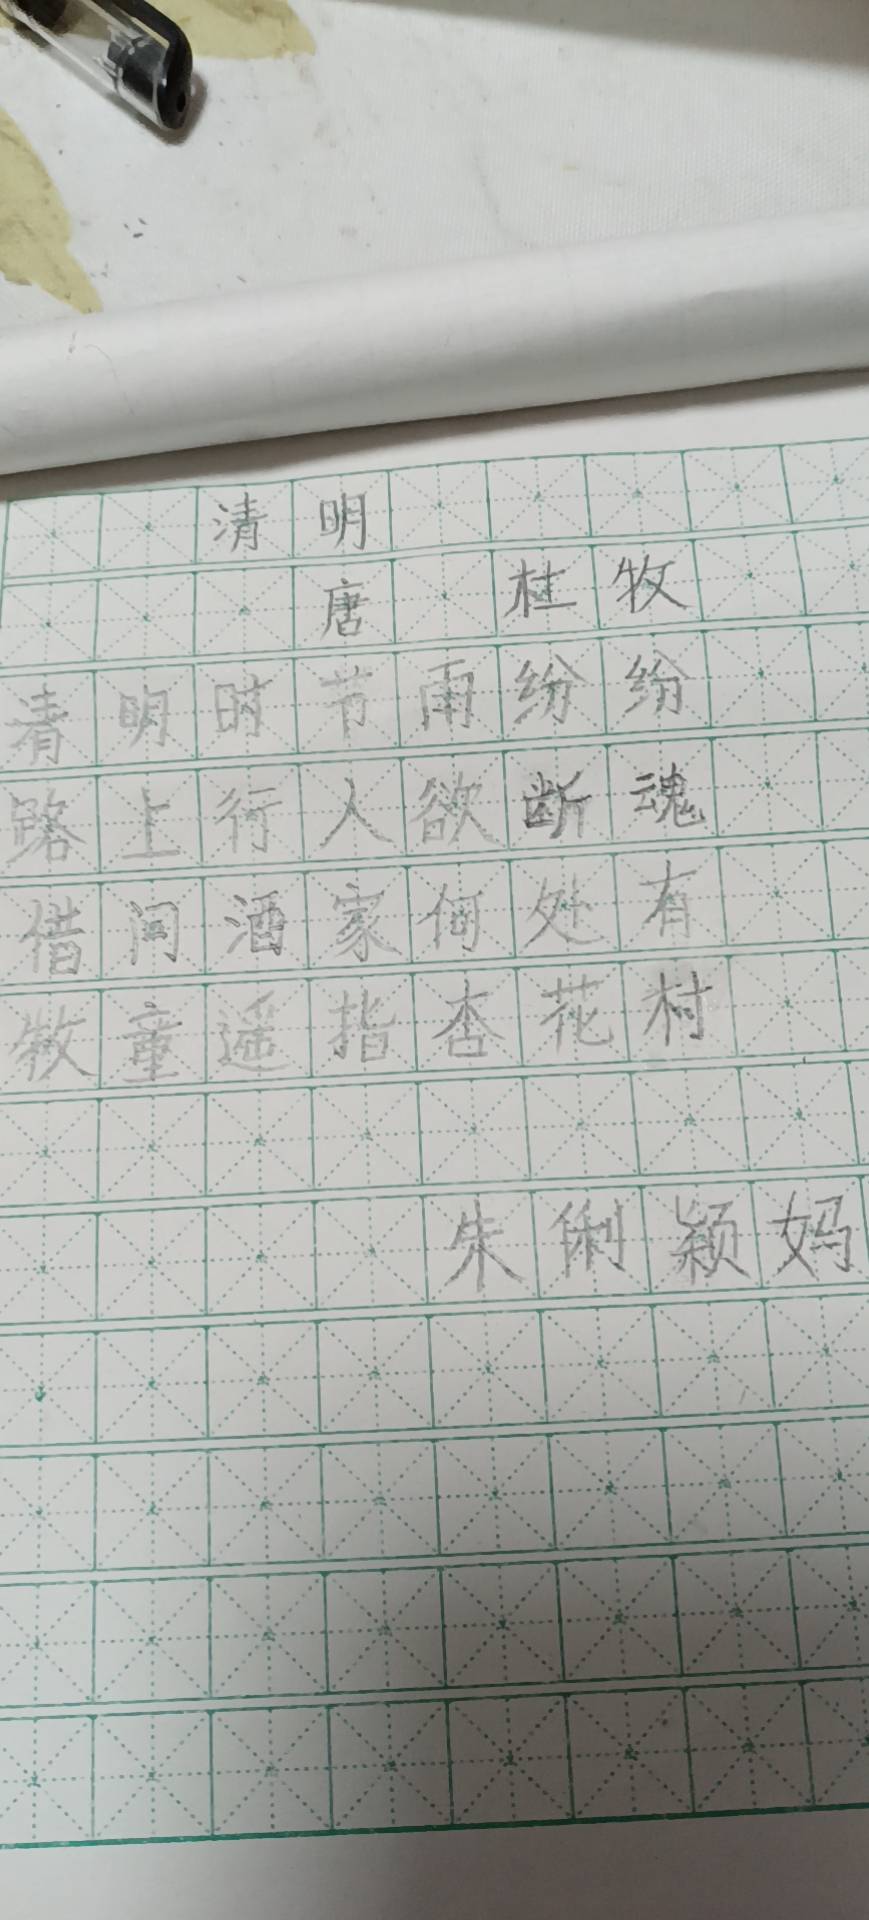 清明
唐 桂牧
清明时节雨纷纷
路上行人欲断魂
借问酒家何处有
牧童遥指杏花村
朱俐颖妈